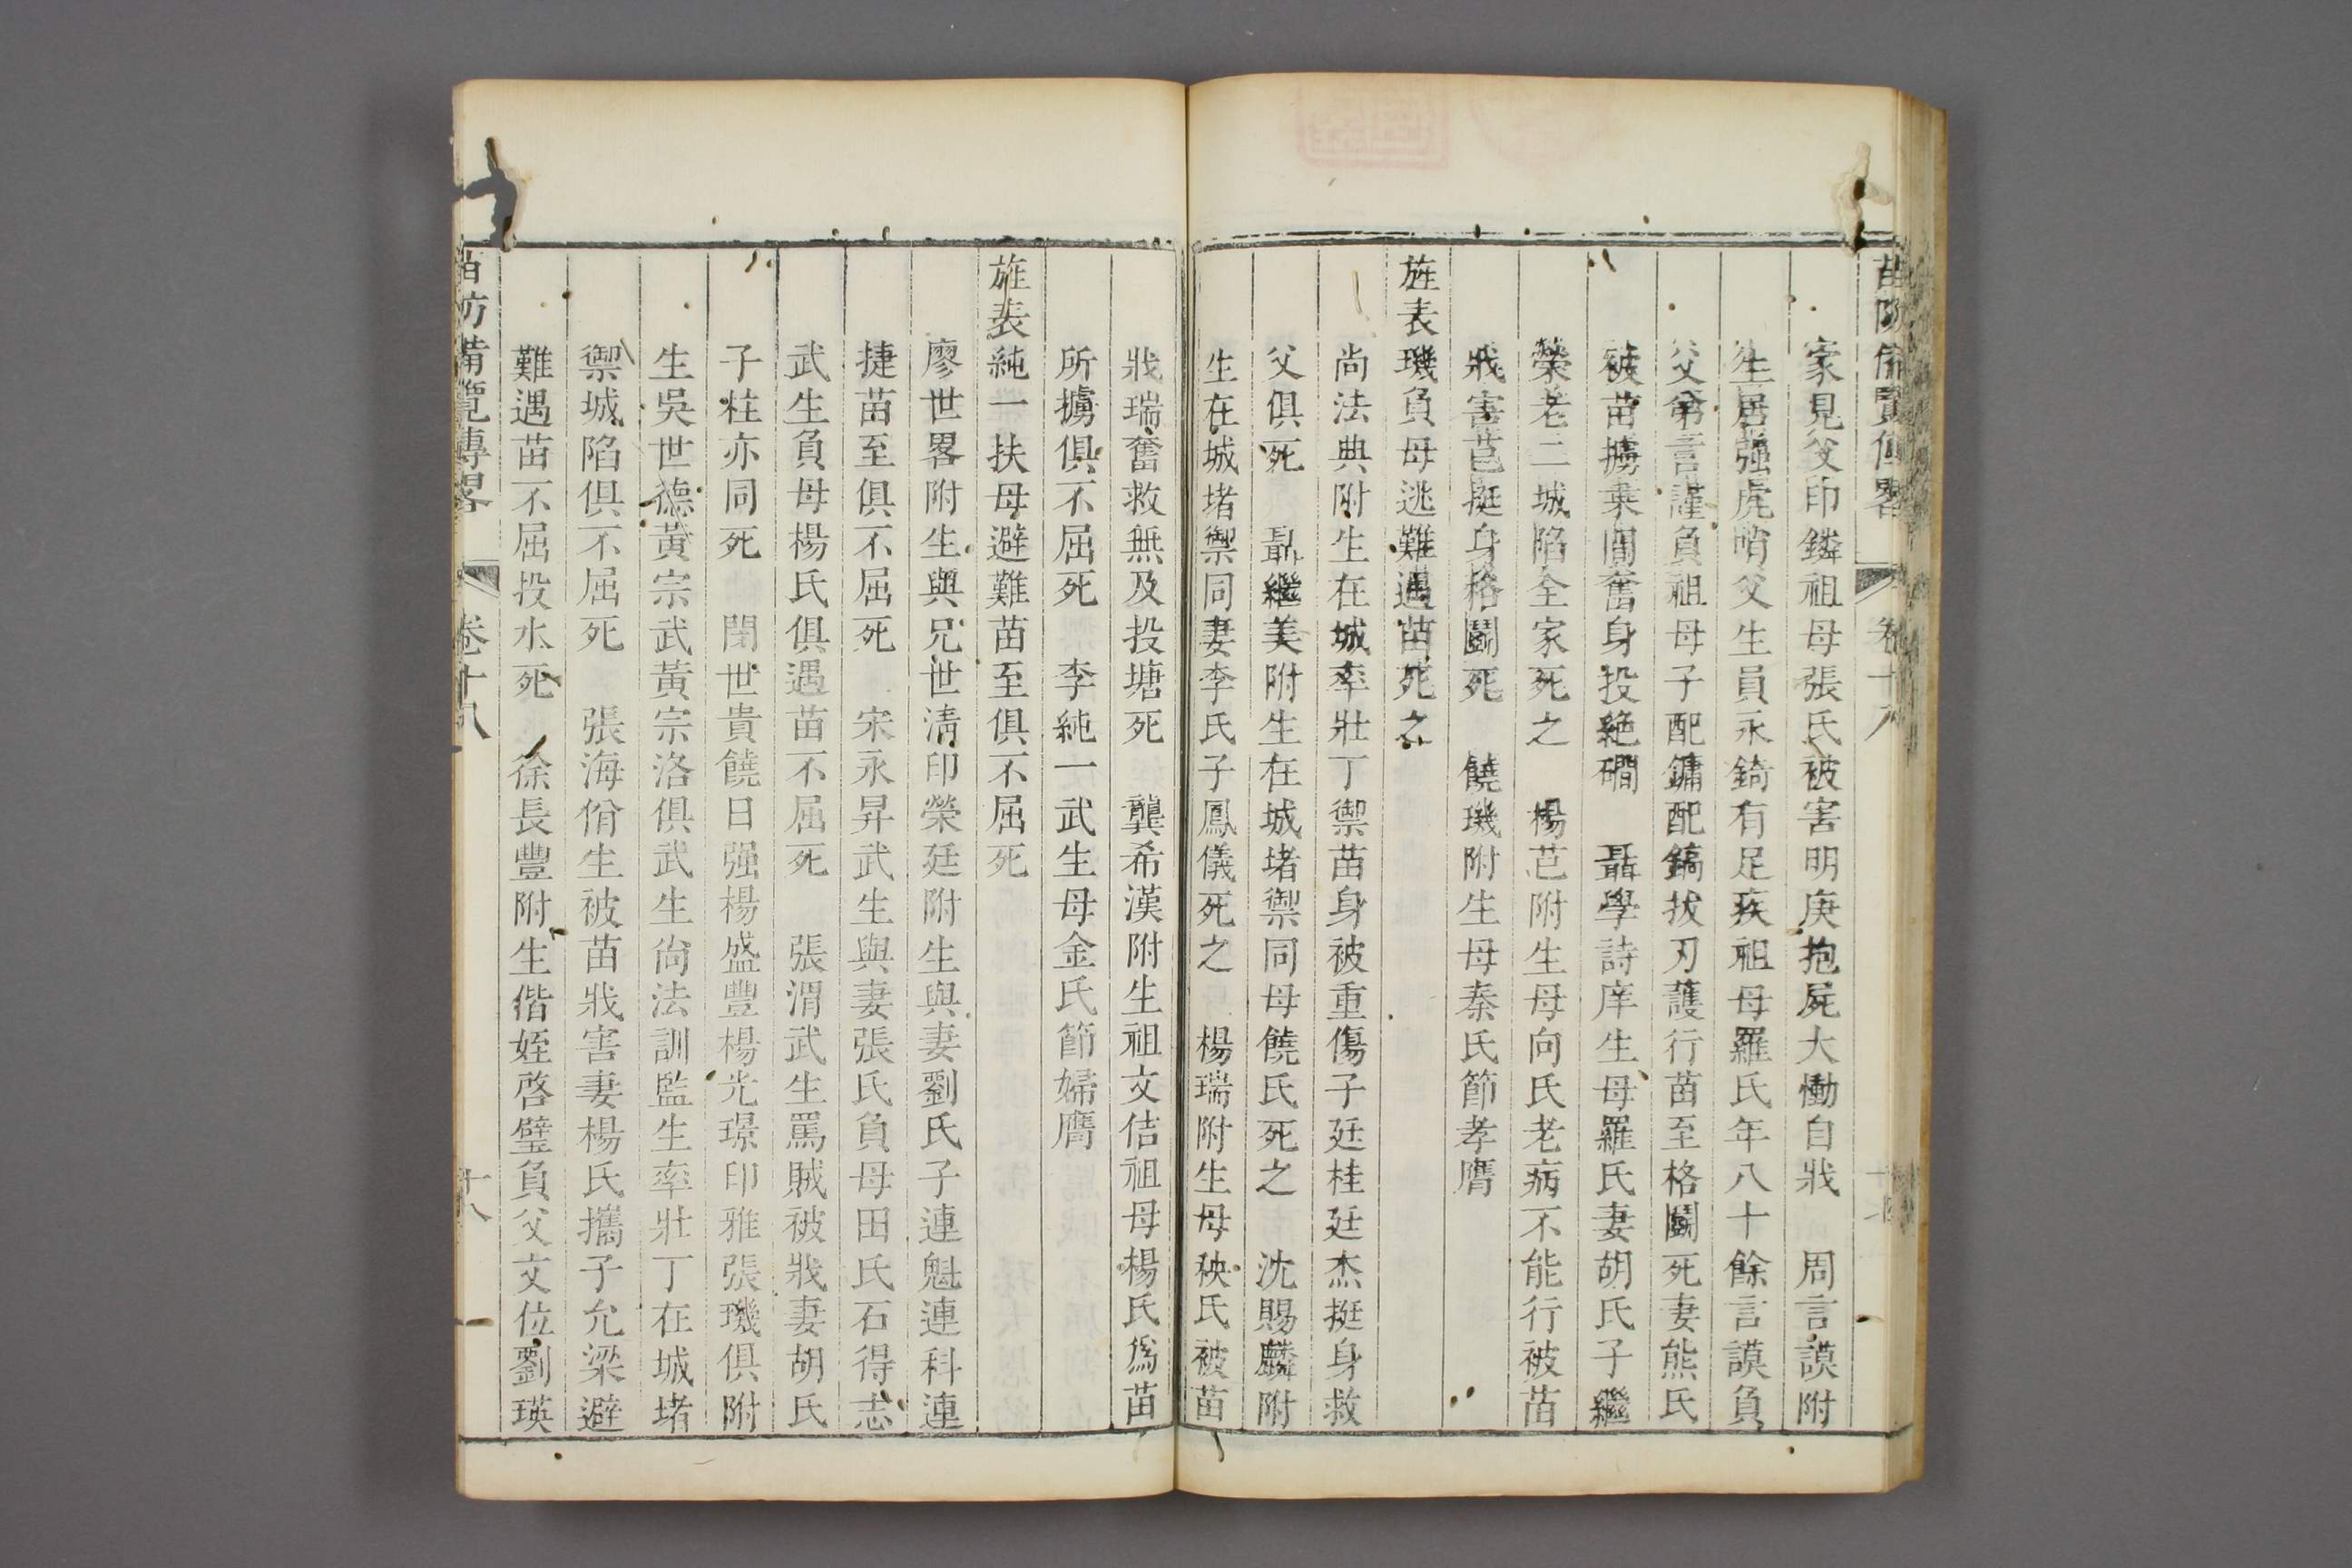 苗防備覽傳畧 卷十八 十七
家見父印鏻祖母張氏被害明庚抱屍大慟自戕 周言謨附
生居強虎哨父生員永錡有足疾祖母羅氏年八十餘言謨負
父弟言謹負祖母子配鏞配鎬拔刃護行苗至格鬭死妻熊氏
被苗擄乘閒奮身投絕磵 聶學詩庠生母羅氏妻胡氏子繼
榮老二城陷全家死之 楊芑附生母向氏老病不能行被苗
戕害芑挺身格鬭死 饒璣附生母秦氏節孝膺
旌表璣負母逃難遇苗死之
尚法典附生在城率壯丁禦苗身被重傷子廷桂廷杰挺身救
父俱死 聶繼美附生在城堵禦同母饒氏死之 沈賜麟附
生在城堵禦同妻李氏子鳳儀死之 楊瑞附生母秧氏被苗
戕瑞奮救無及投塘死 龔希漢附生祖文佶祖母楊氏爲苗
所擄俱不屈死 李純一武生母金氏節婦膺
旌表純一扶母避難苗至俱不屈死
廖世畧附生與兄世淸印榮廷附生與妻劉氏子連魁連科連
捷苗至俱不屈死 宋永昇武生與妻張氏負母田氏石得志
武生負母楊氏俱遇苗不屈死 張渭武生罵賊被戕妻胡氏
子柱亦同死 閉世貴饒日强楊盛豐楊光璟印雅張璣俱附
生吳世德黃宗武黃宗洛俱武生尙法訓監生率壯丁在城堵
禦城陷俱不屈死 張海佾生被苗戕害妻楊氏攜子允梁避
難遇苗不屈投水死 徐長豐附生偕姪啓璧負父文位劉瑛
苗防備覽傳畧 卷十八 十八